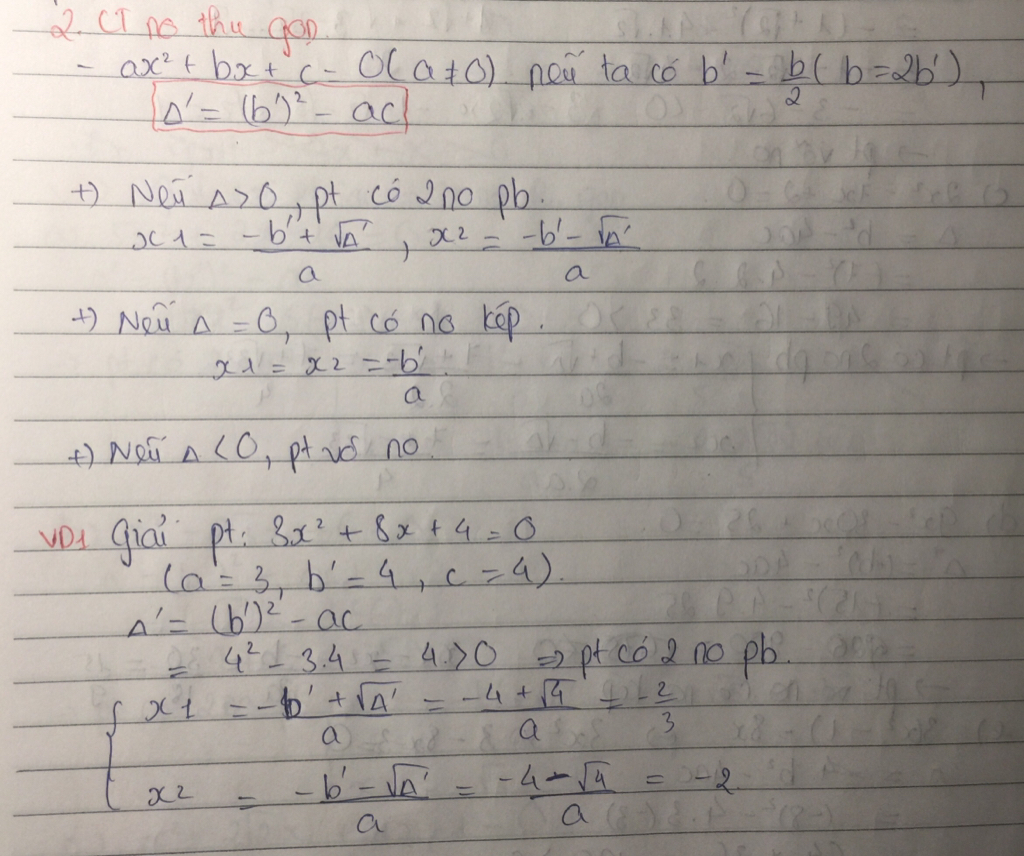 2. CT no thu gọn.
- ax² + bx + c = 0 (a ≠ 0) nếu ta có b' = b/2 (b = 2b'),
Δ' = (b')² - ac
+) Nếu Δ > 0, pt có 2 no pb.
x1 = (-b' + √Δ')/a , x2 = (-b' - √Δ')/a
+) Nếu Δ = 0, pt có no kép.
x1 = x2 = -b'/a.
+) Nếu Δ < 0, pt vô no.
VD1 Giải pt: 3x² + 8x + 4 = 0
(a = 3, b' = 4, c = 4).
Δ' = (b')² - ac
= 4² - 3.4 = 4 > 0 => pt có 2 no pb.
{ x1 = (-b' + √Δ')/a = (-4 + √4)/a = -2/3
x2 = (-b' - √Δ')/a = (-4 - √4)/a = -2